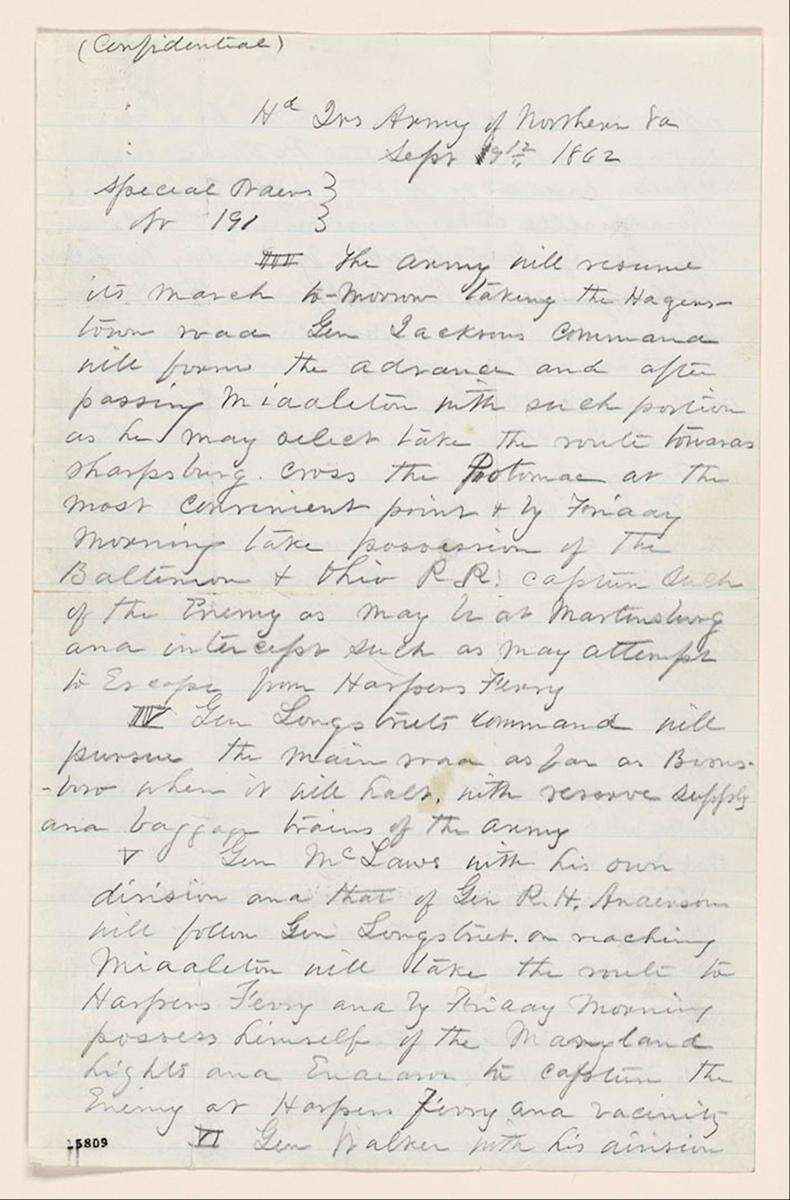 (Confidential)
Hd Qrs Army of Northern Va
Sept 9th 1862
Special Orders }
No 191 }
III The army will resume
its march to-morrow taking the Hagers-
town road Gen Jacksons Command
will form the advance and after
passing Middleton with such portion
as he may select take the route towards
Sharpsburg. cross the Potomac at the
most convenient point & by Friday
Morning take possession of the
Baltimore & Ohio R.R. capture such
of the Enemy as may be at Martinsburg
and intercept such as may attempt
to Escape from Harpers Ferry
IV Gen Longstreets Command will
pursue the main road as far as Boons-
-boro where it will halt. with reserve supply
and baggage trains of the army
V Gen McLaws with his own
division and that of Gen R.H. Anderson
will follow Gen Longstreet. on reaching
Middleton will take the route to
Harpers Ferry and by Friday Morning
possess himself of the Maryland
hights and Endeavor to capture the
Enemy at Harpers Ferry and vacinity
VI Gen Walker with his division
15809